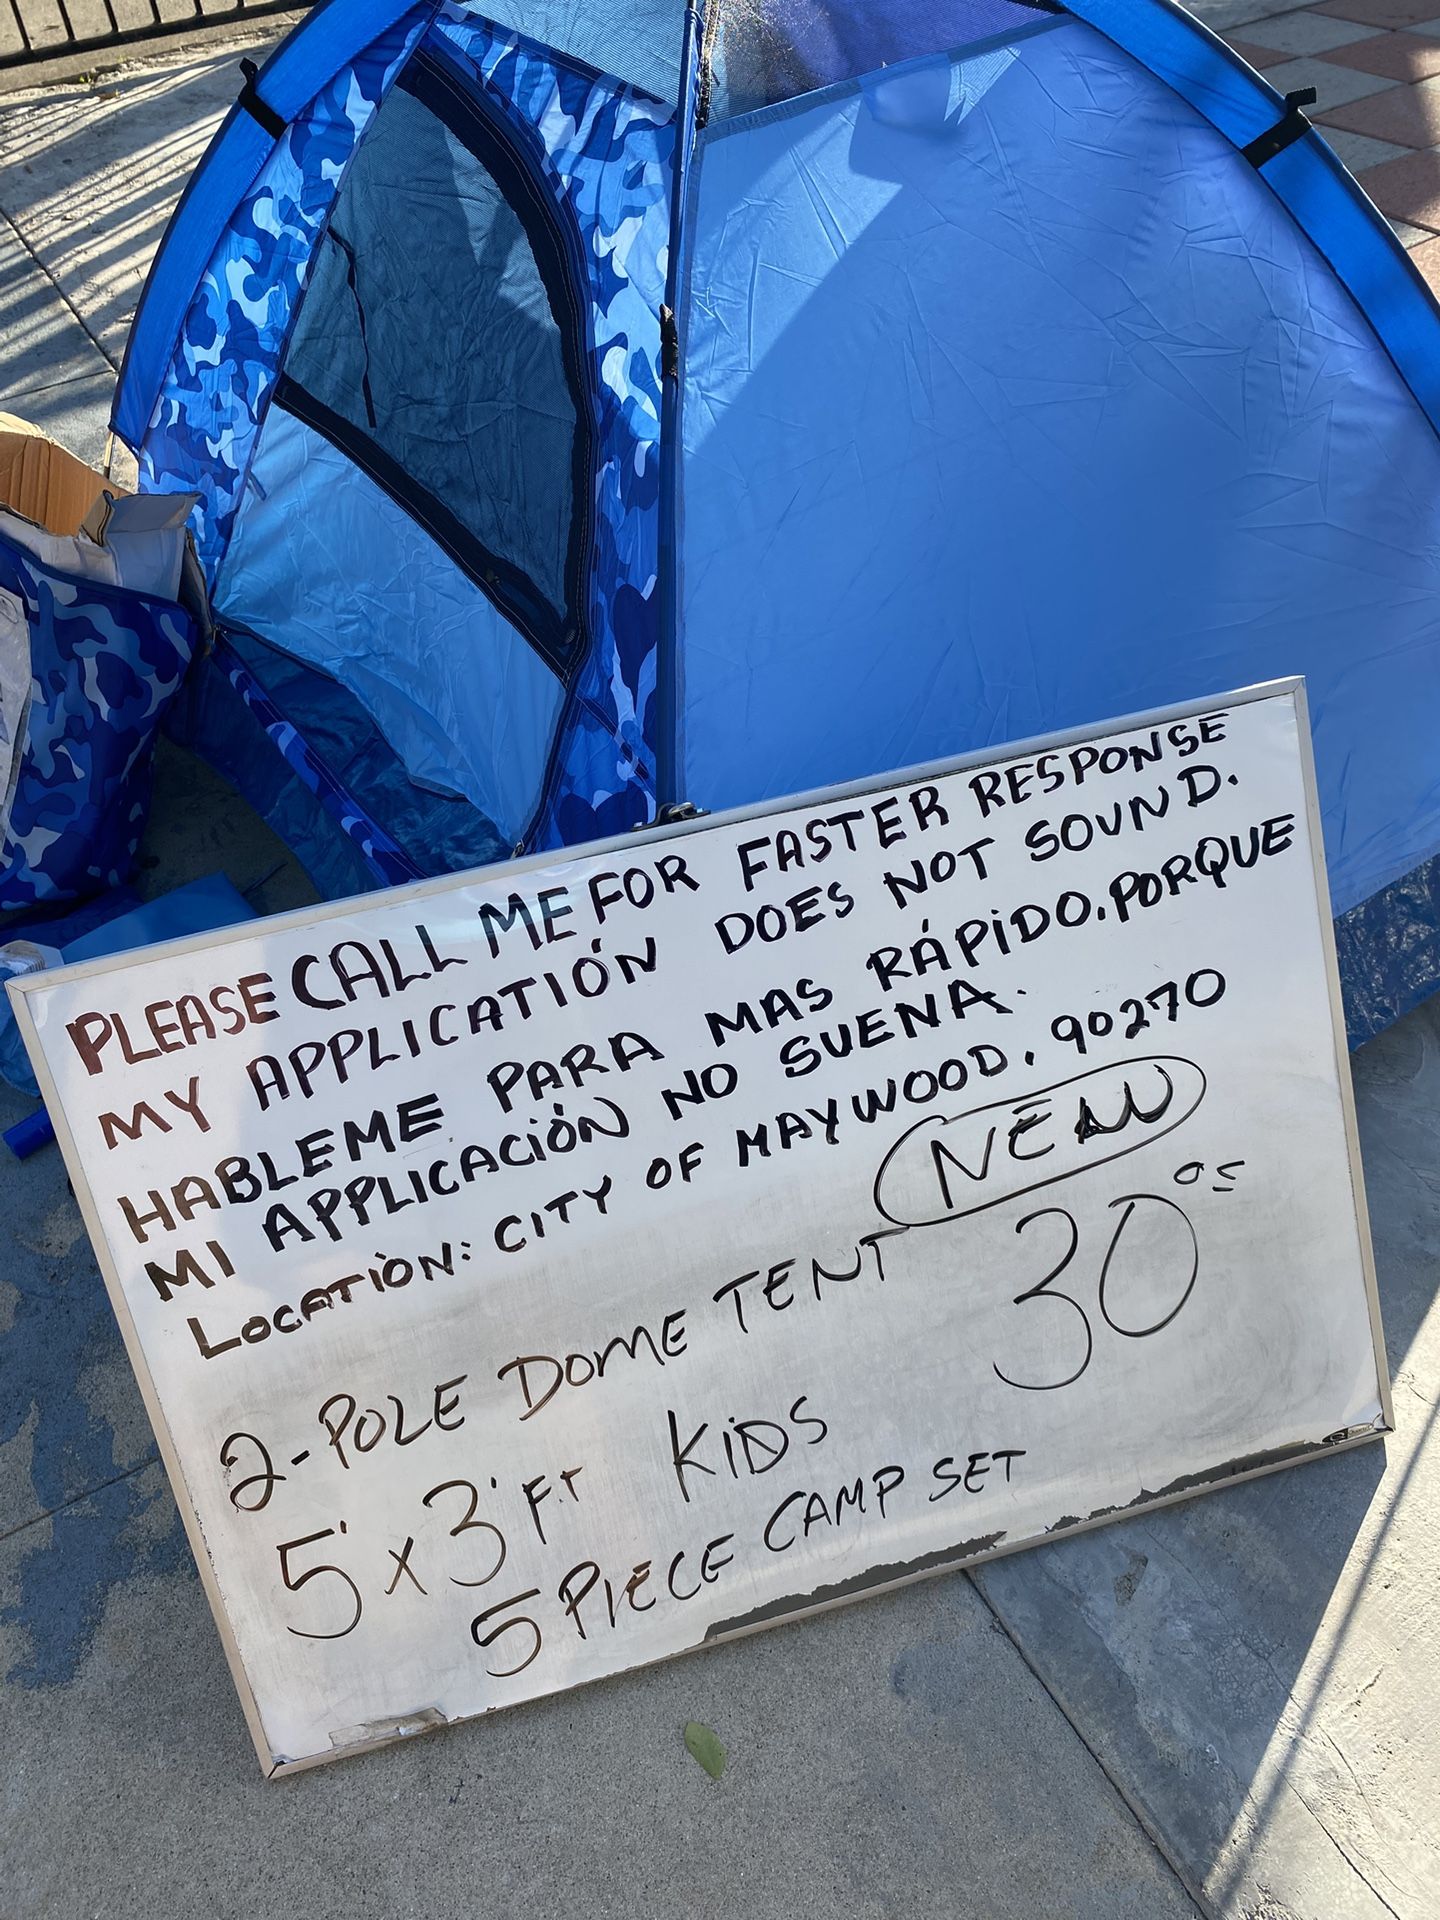 PLEASE CALL ME FOR FASTER RESPONSE
MY APPLICATIÓN DOES NOT SOUND.
HABLEME PARA MAS RÁPIDO. PORQUE
MI APPLICACIÓN NO SUENA.
LOCATION: CITY OF MAYWOOD. 90270
NEW
2-POLE DOME TENT 30
5' x 3' FT KIDS
5 PIECE CAMP SET